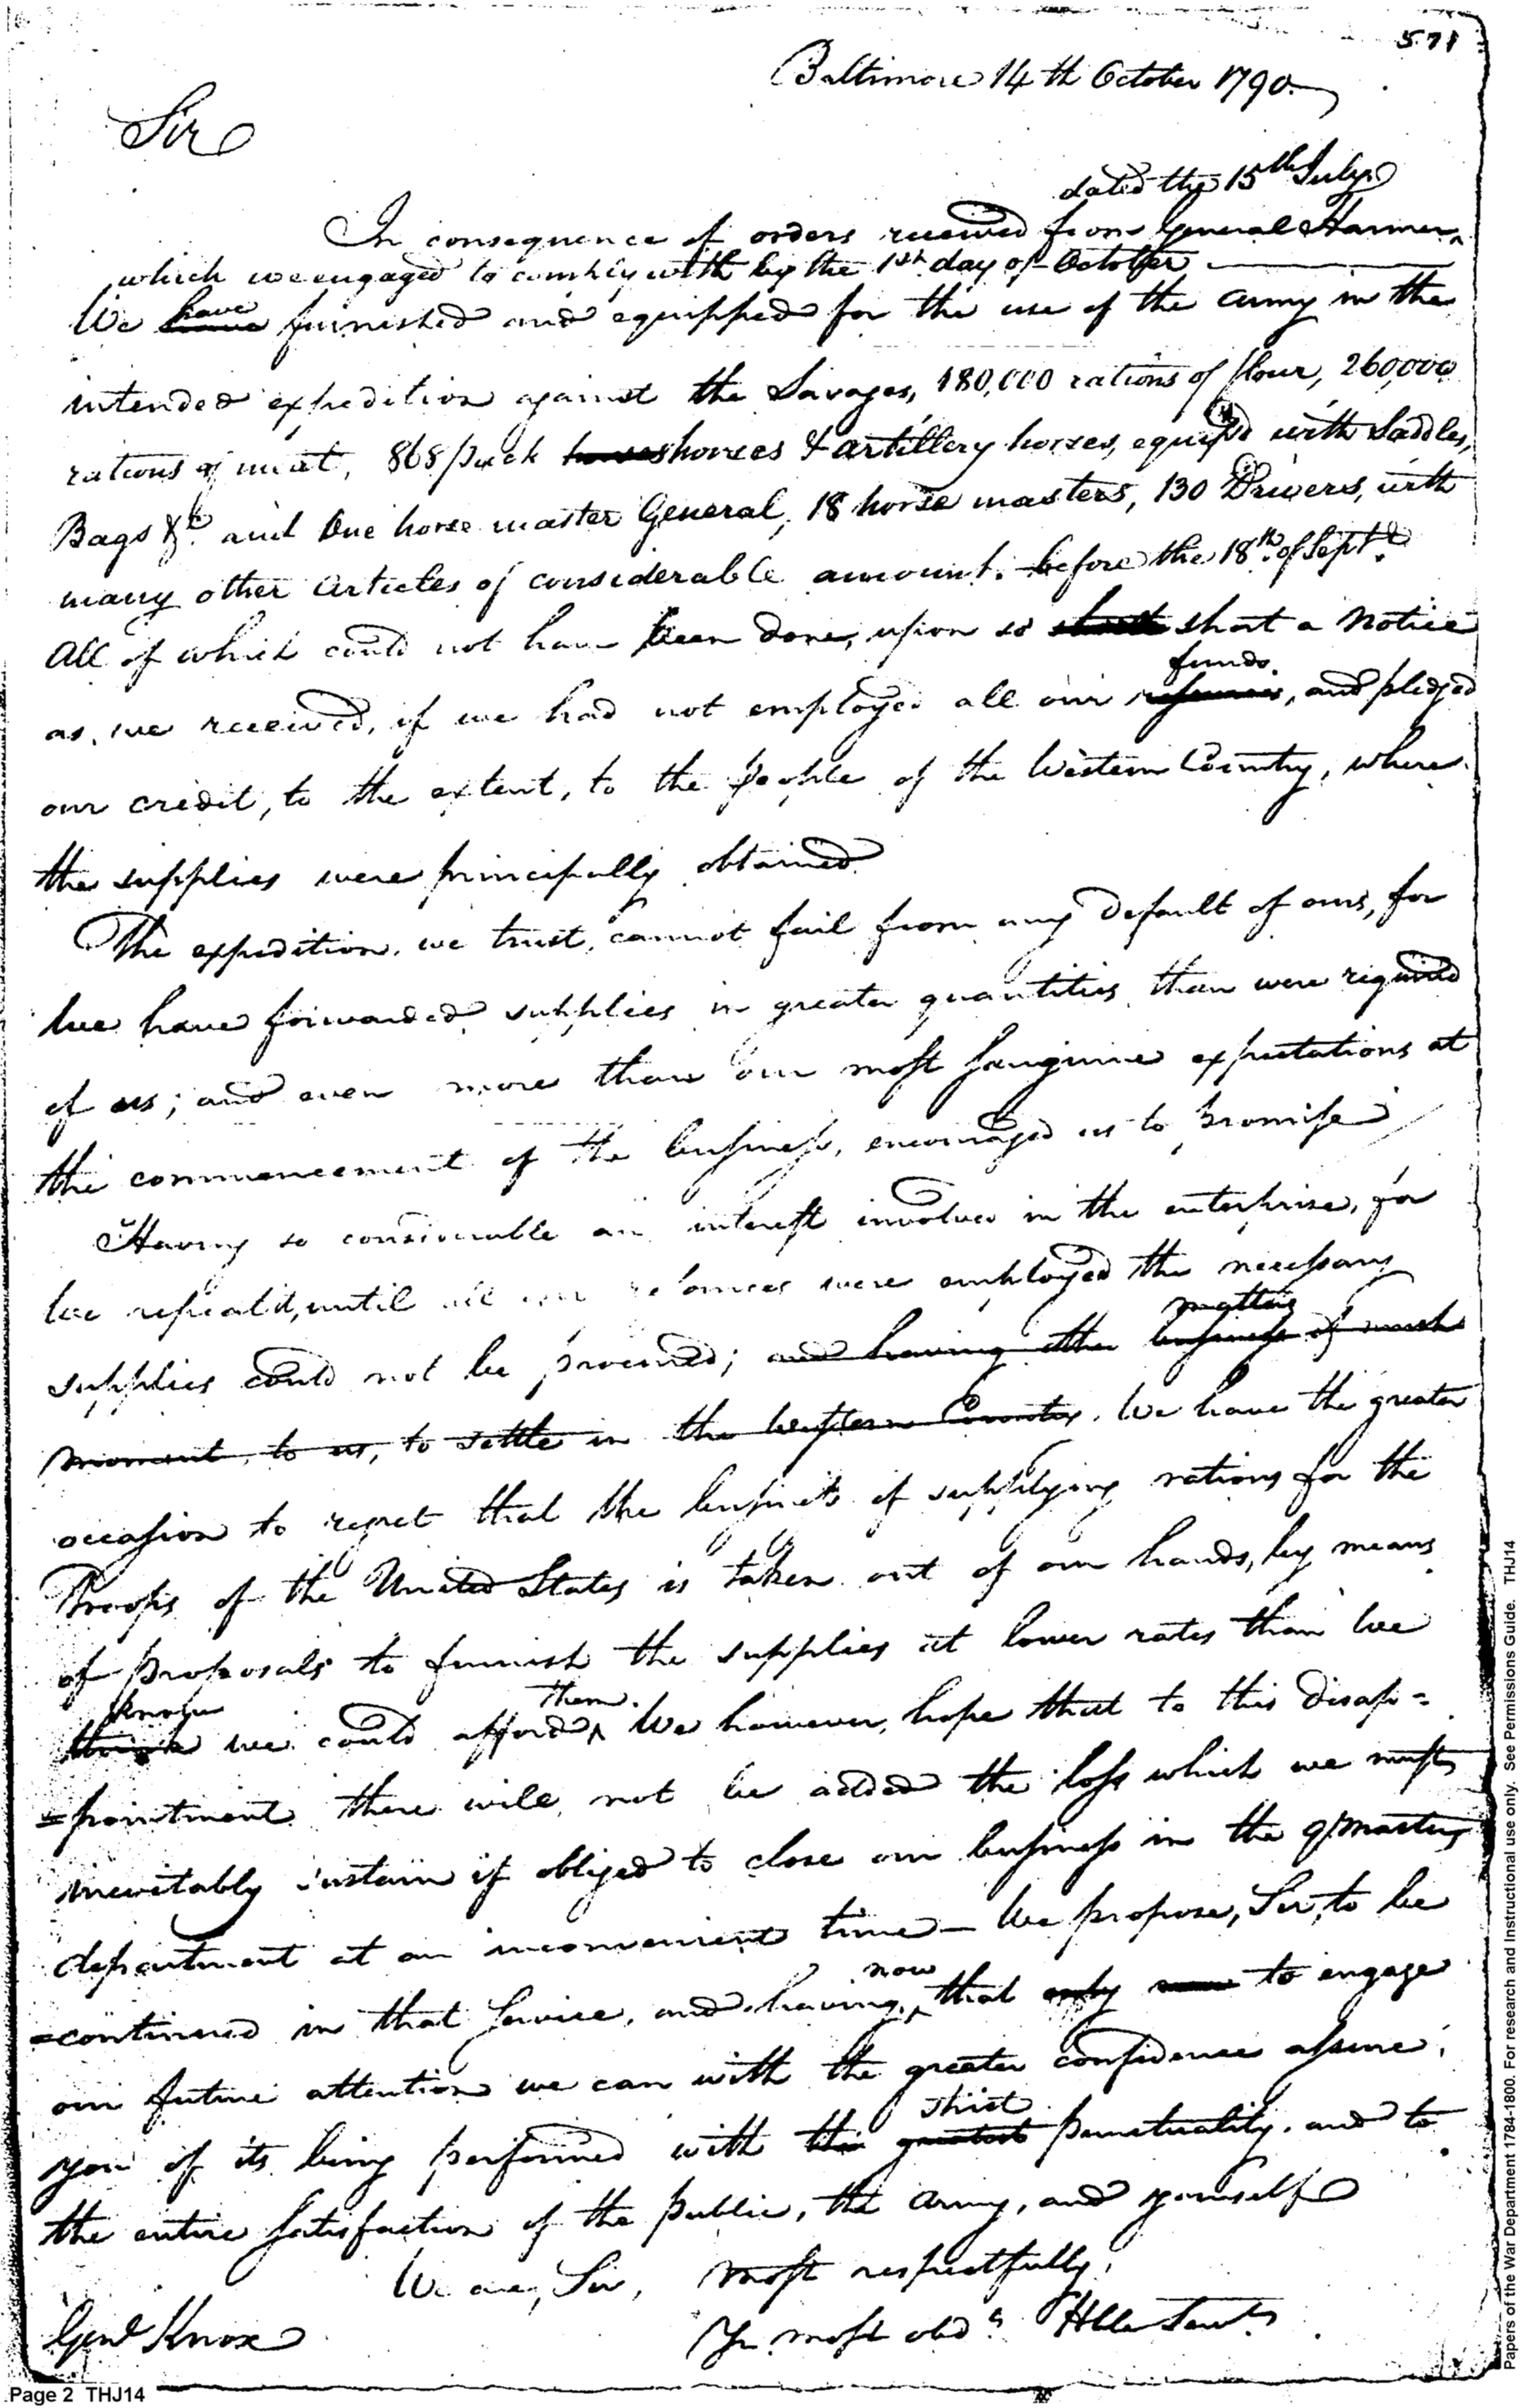 571
Baltimore 14th October 1790.
Sir
dated the 15th July
In consequence of orders received from General Harmer
which we engaged to comply with by the 1st day of October
We have have furnished and equipped for the use of the army in the
intended expedition against the Savages, 180,000 rations of flour, 260,000
rations of meat, 868 pack horses horses & artillery horses, equip'd with Saddles,
Bags &c. and One horse master General, 18 horse masters, 130 Drivers, with
many other Articles of considerable amount. before the 18th. of Sept.
All of which could not have been done, upon so short short a Notice
funds
as we received, if we had not employed all our resources, and pledged
our credit, to the extent, to the People of the Western Country, where
the supplies were principally obtained.
The expedition, we trust, cannot fail from any Default of ours, for
we have forwarded supplies in greater quantities than were required
of us; and even more than our most sanguine expectations at
the commencement of the business, encouraged us to promise
Having so considerable an interest involved in the enterprise, for
we repeat it, until all our resources were employed the necessary
matters
supplies could not be procured; and having other business of much
moment, to us, to settle in the Western Country. We have the greater
occasion to regret that the business of supplying rations for the
Troops of the United States is taken out of our hands, by means
of proposals to furnish the supplies at lower rates than we
know them.
think we could afford ^ We however, hope that to this disap=
=pointment there will not be added the loss which we must
inevitably sustain if obliged to close our business in the qrmasters
department at an inconvenient time — We propose, Sir, to be
now
=continued in that Service, and having ^ that only now to engage
our future attention we can with the greater confidence assure
strict
you of its being performed with the greatest punctuality, and to
the entire Satisfaction of the Public, the Army, and yourself
We are, Sir, most respectfully,
Genl Knox
Yr most obdt Hble Servts
Page 2 THJ14
Papers of the War Department 1784-1800. For research and Instructional use only. See Permissions Guide. THJ14